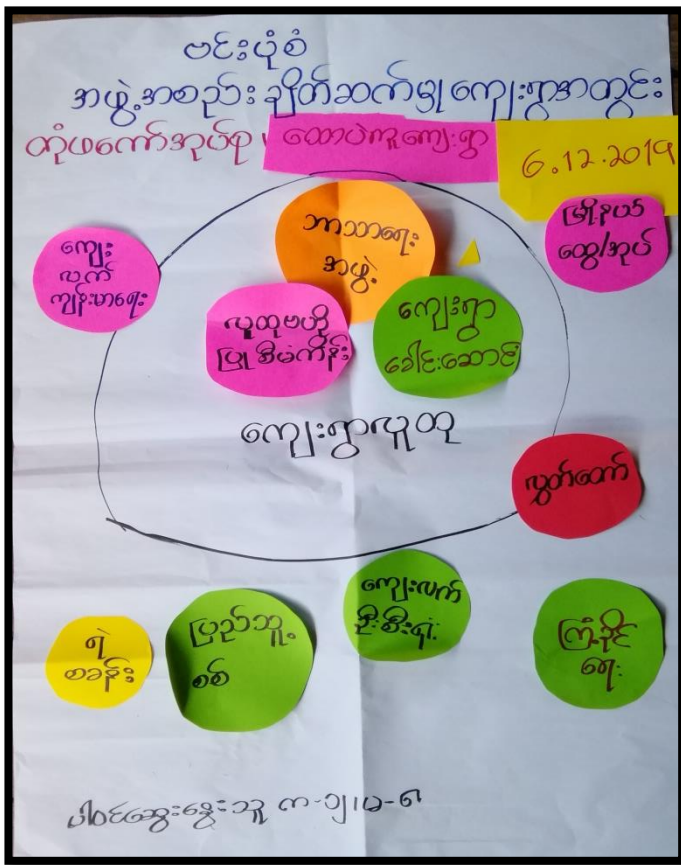 ဗင်းပုံစံ
အဖွဲ့အစည်း ချိတ်ဆက်မှု ကျေးရွာအတွင်း
တုံဖကော်အုပ်စု၊ ထောပဲကူကျေးရွာ 6.12.2019
မြို့နယ်
ထွေ/အုပ်
ကျေး
လက်
ကျန်းမာရေး
ဘာသာရေး
အဖွဲ့
လူထုဗဟို
ပြု စီမံကိန်း
ကျေးရွာ
ခေါင်းဆောင်
ကျေးရွာလူထု
လွှတ်တော်
ရဲ
စခန်း
ပြည်သူ့
စစ်
ကျေးလက်
ဦးစီးရုံး
ကြံ့ခိုင်
ရေး
ပါဝင်ဆွေးနွေးသူ ကျ-၁၂၊ မ-၆